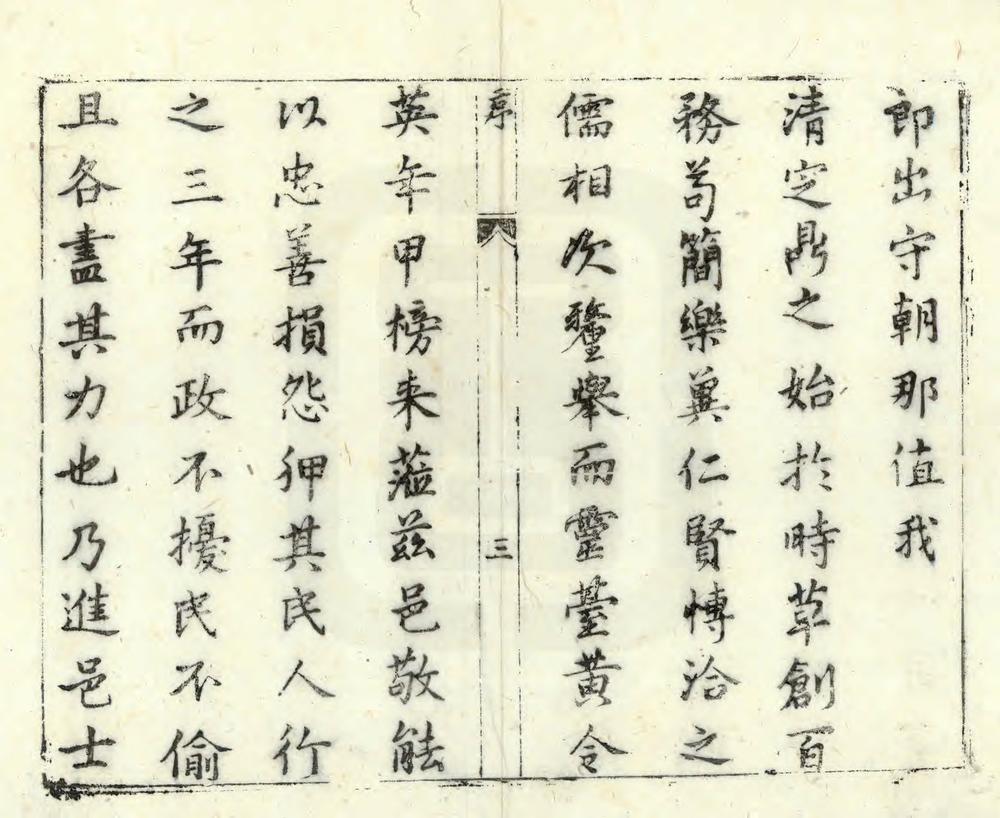 郎出守朝那值我
清定鼎之始於時草創百
務苟簡樂冀仁賢博洽之
儒相次釐舉而靈臺黄令
序
三
英年甲榜来蒞茲邑敬能
以忠善損怨狎其民人行
之三年而政不擾民不偷
且各盡其力也乃進邑士